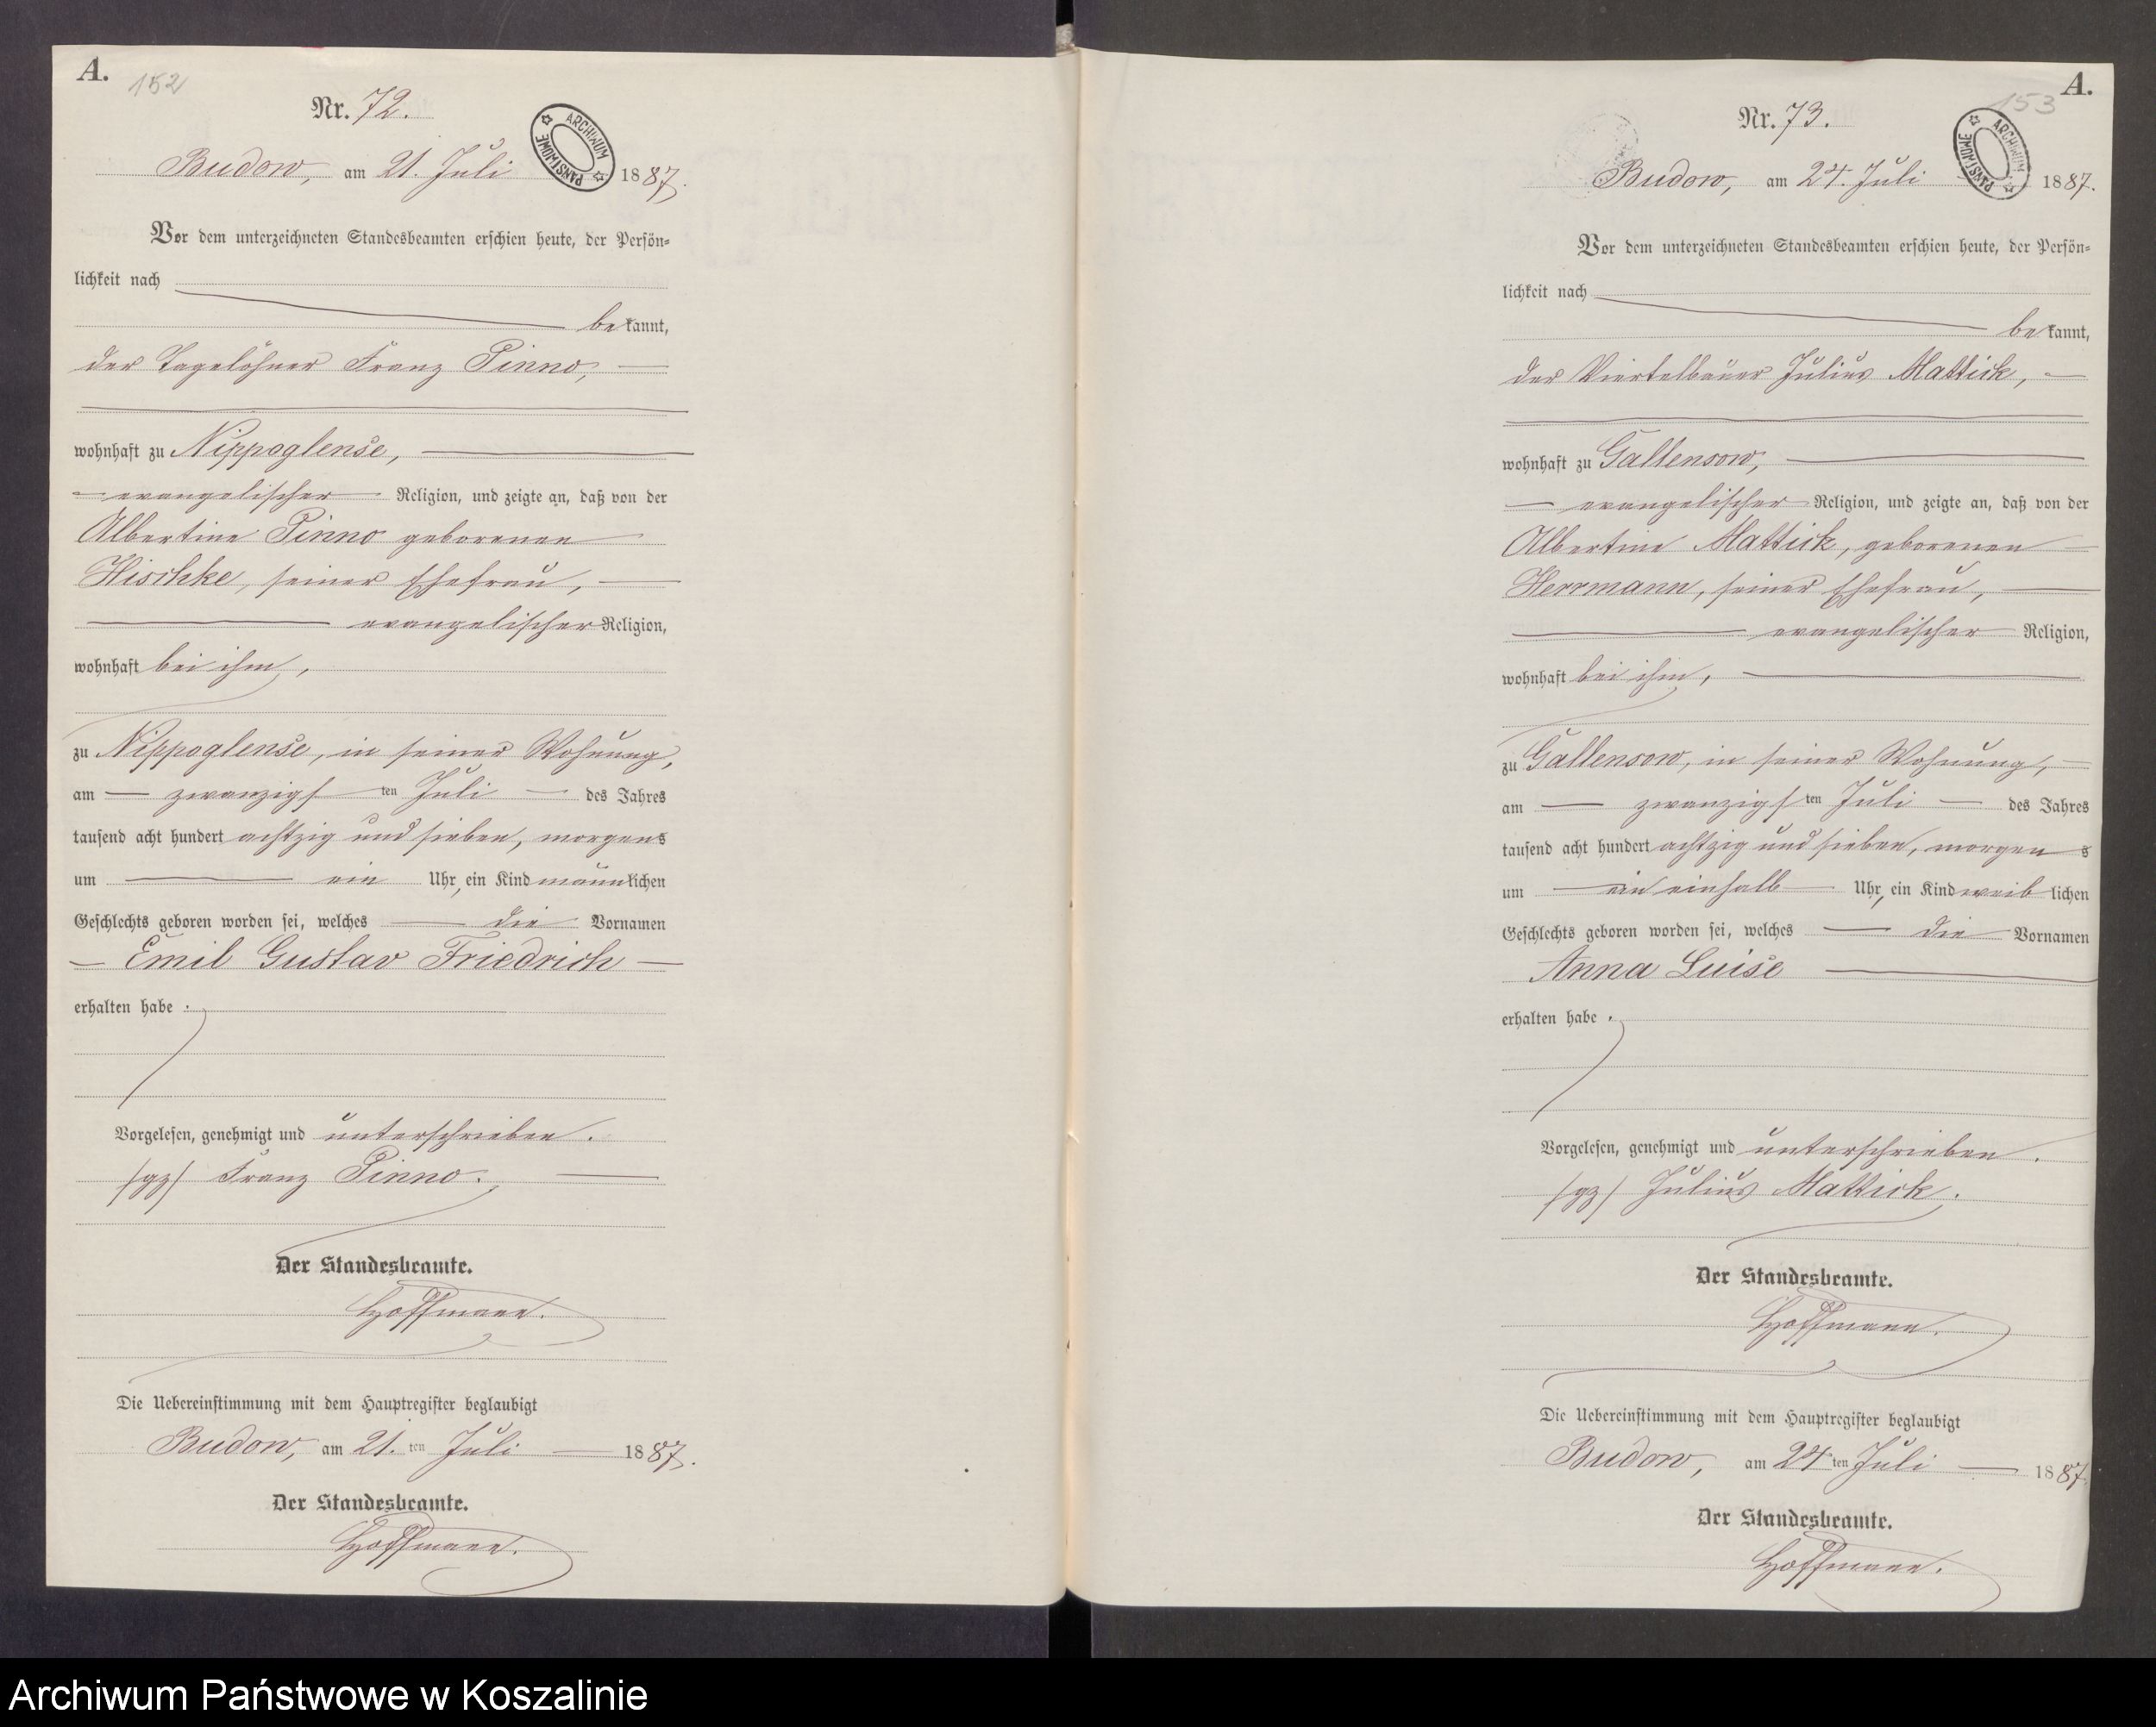 A.
152
Nr. 72.
ARCHIWUM PAŃSTWOWE
Budow, am 21. Juli 1887.
Vor dem unterzeichneten Standesbeamten erschien heute, der Persön-
lichkeit nach
bekannt,
der Tagelöhner Franz Pinno,
wohnhaft zu Nippoglense,
evangelischer Religion, und zeigte an, daß von der
Albertine Pinno geborenen
Hischke, seiner Ehefrau,
evangelischer Religion,
wohnhaft bei ihm,
zu Nippoglense, in seiner Wohnung,
am zwanzigsten Juli des Jahres
tausend acht hundert achtzig und sieben, morgens
um ein Uhr, ein Kind männlichen
Geschlechts geboren worden sei, welches die Vornamen
Emil Gustav Friedrich
erhalten habe.
Vorgelesen, genehmigt und unterschrieben.
/gz/ Franz Pinno.
Der Standesbeamte.
Hoffmann.
Die Uebereinstimmung mit dem Hauptregister beglaubigt
Budow, am 21. ten Juli 1887.
Der Standesbeamte.
Hoffmann.
A.
153
Nr. 73.
ARCHIWUM PAŃSTWOWE
Budow, am 24. Juli 1887.
Vor dem unterzeichneten Standesbeamten erschien heute, der Persön-
lichkeit nach
bekannt,
der Viertelbauer Julius Mattick,
wohnhaft zu Gallensow,
evangelischer Religion, und zeigte an, daß von der
Albertine Mattick, geborenen
Herrmann, seiner Ehefrau,
evangelischer Religion,
wohnhaft bei ihm,
zu Gallensow, in seiner Wohnung,
am zwanzigsten Juli des Jahres
tausend acht hundert achtzig und sieben, morgens
um ein einhalb Uhr, ein Kind weiblichen
Geschlechts geboren worden sei, welches die Vornamen
Anna Luise
erhalten habe.
Vorgelesen, genehmigt und unterschrieben.
/gz/ Julius Mattick.
Der Standesbeamte.
Hoffmann.
Die Uebereinstimmung mit dem Hauptregister beglaubigt
Budow, am 24 ten Juli 1887.
Der Standesbeamte.
Hoffmann.
Archiwum Państwowe w Koszalinie